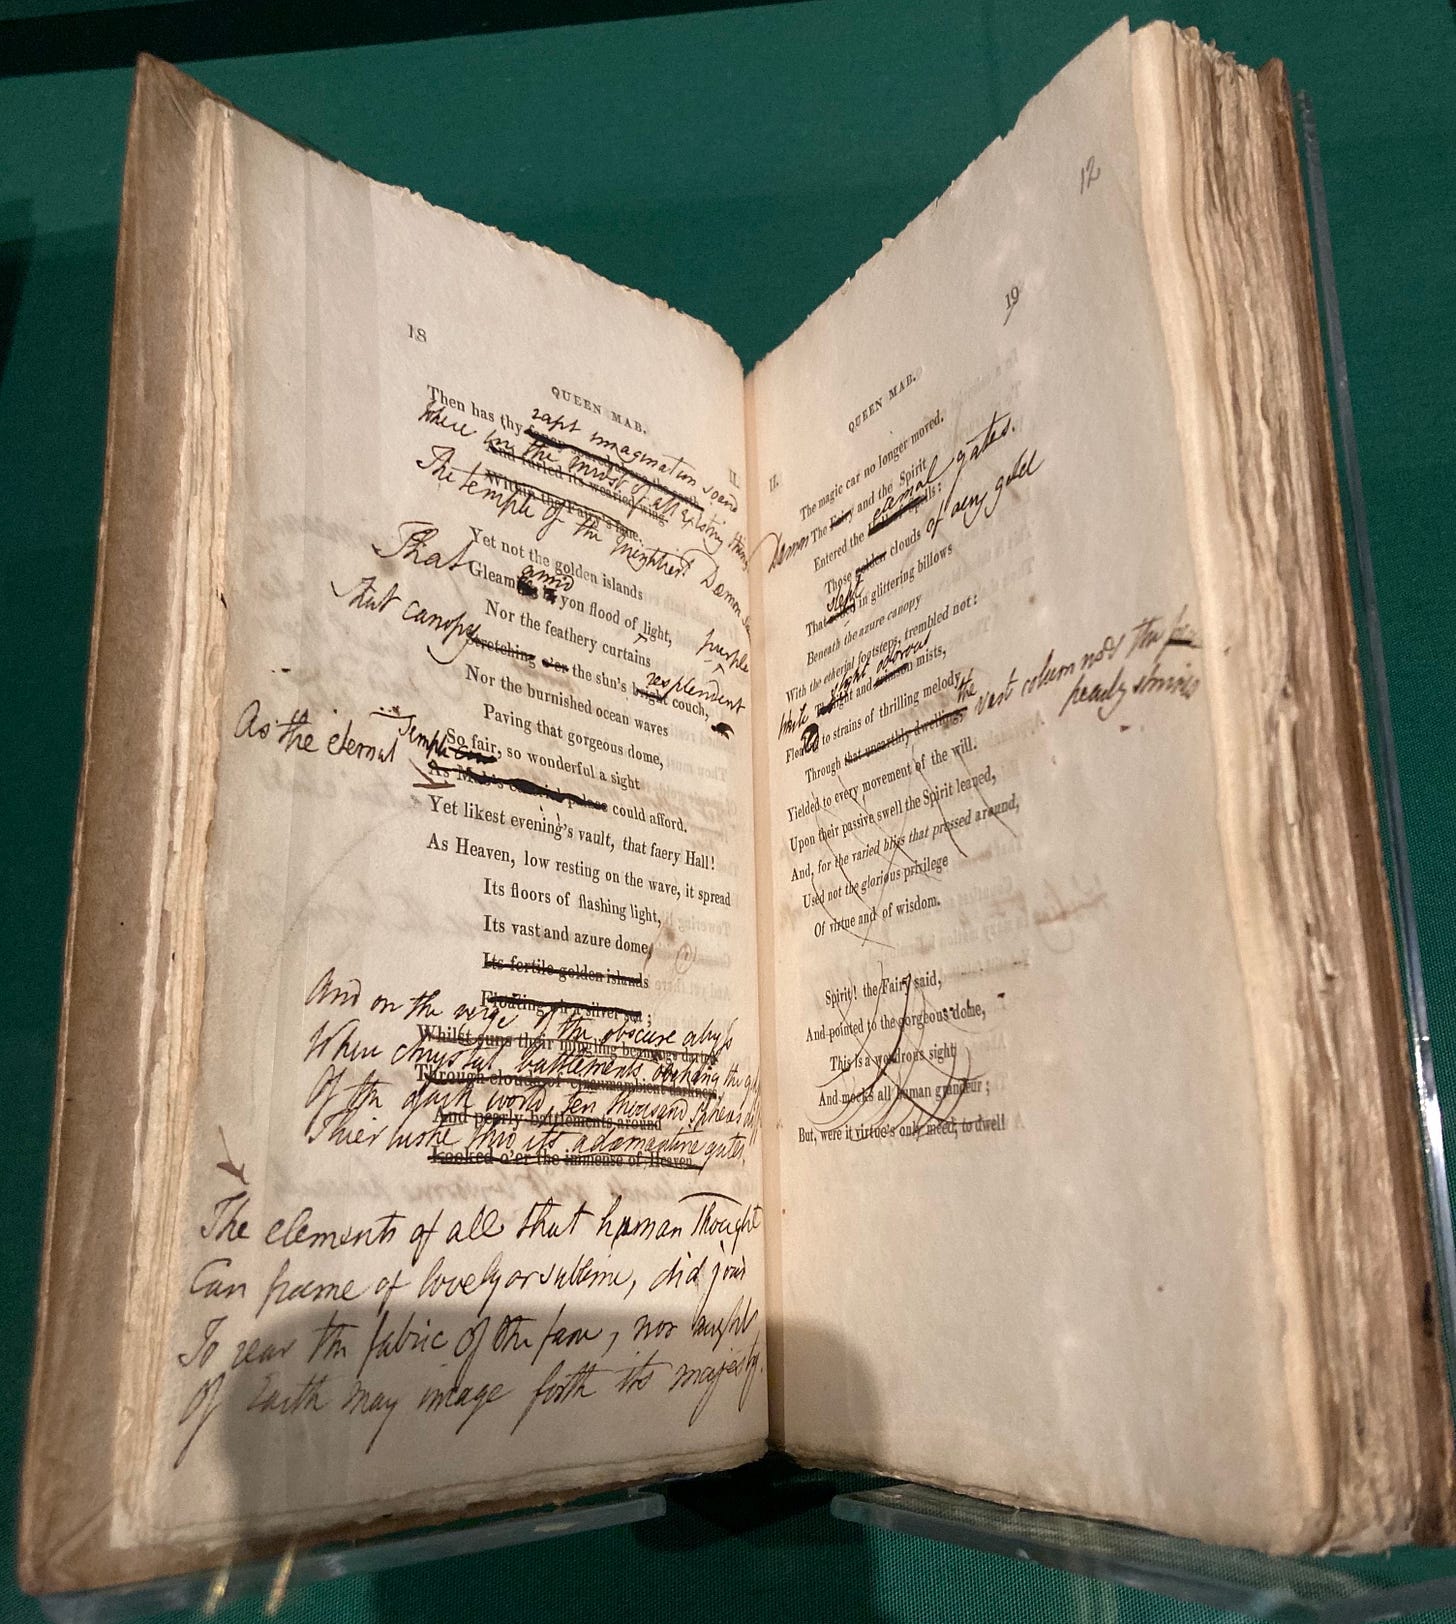 18
QUEEN MAB.
II.
Then has thy
rapt imagination soar'd
Where in the midst of all existing things
The temple of the mightiest Dæmon
Within the Fairy's fane.
Yet not the golden islands
That
Gleam
amid
yon flood of light,
Nor the feathery curtains
purple
That canopy
Stretching o'er the sun's bright couch,
resplendent
Nor the burnished ocean waves
Paving that gorgeous dome,
So fair, so wonderful a sight
As the eternal
Temple
As Mab's palace could afford.
Yet likest evening's vault, that faery Hall!
As Heaven, low resting on the wave, it spread
Its floors of flashing light,
Its vast and azure dome,
Its fertile golden islands
Floating on a silver sea;
And on the verge of the obscure abyss
Whilst suns their mingling beamings darted
Where chrystal battlements oerhang the
Through clouds of circumambient darkness,
Of the dark world, ten thousand spheres
And pearly battlements around
Thier lustre thro its adamantine gates.
Looked o'er the immense of Heaven.
The elements of all that human thought
Can frame of lovely or sublime, did join
To rear the fabric of the fane, nor aught
Of Earth may image forth its majesty.
12
19
QUEEN MAB.
II.
The magic car no longer moved.
Dæmon
The Fairy and the Spirit
Entered the
eternal gates.
Those golden clouds
of aery gold
slept
That in glittering billows
Beneath the azure canopy
With the etherial footsteps, trembled not:
While
slight odorous
and mists,
to strains of thrilling melody
Through that unearthly dwelling,
the vast column
pearly shrines
Yielded to every movement of the will.
Upon their passive swell the Spirit leaned,
And, for the varied bliss that pressed around,
Used not the glorious privilege
Of virtue and of wisdom.
Spirit! the Fairy said,
And pointed to the gorgeous dome,
This is a wondrous sight
And mocks all human grandeur;
But, were it virtue's only meed, to dwell